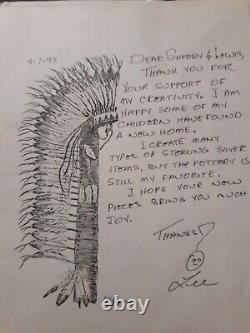 4-7-93
DEAR SHERRY & LEWIS,
THANK YOU FOR
YOUR SUPPORT OF
MY CREATIVITY. I AM
HAPPY SOME OF MY
CHILDREN HAVE FOUND
A NEW HOME.
I CREATE MANY
TYPES OF STERLING SILVER
ITEMS, BUT THE POTTERY IS
STILL MY FAVORITE.
I HOPE YOUR NEW
PIECES BRING YOU MUCH
JOY.
THANKS
Lee
ebay
© 111